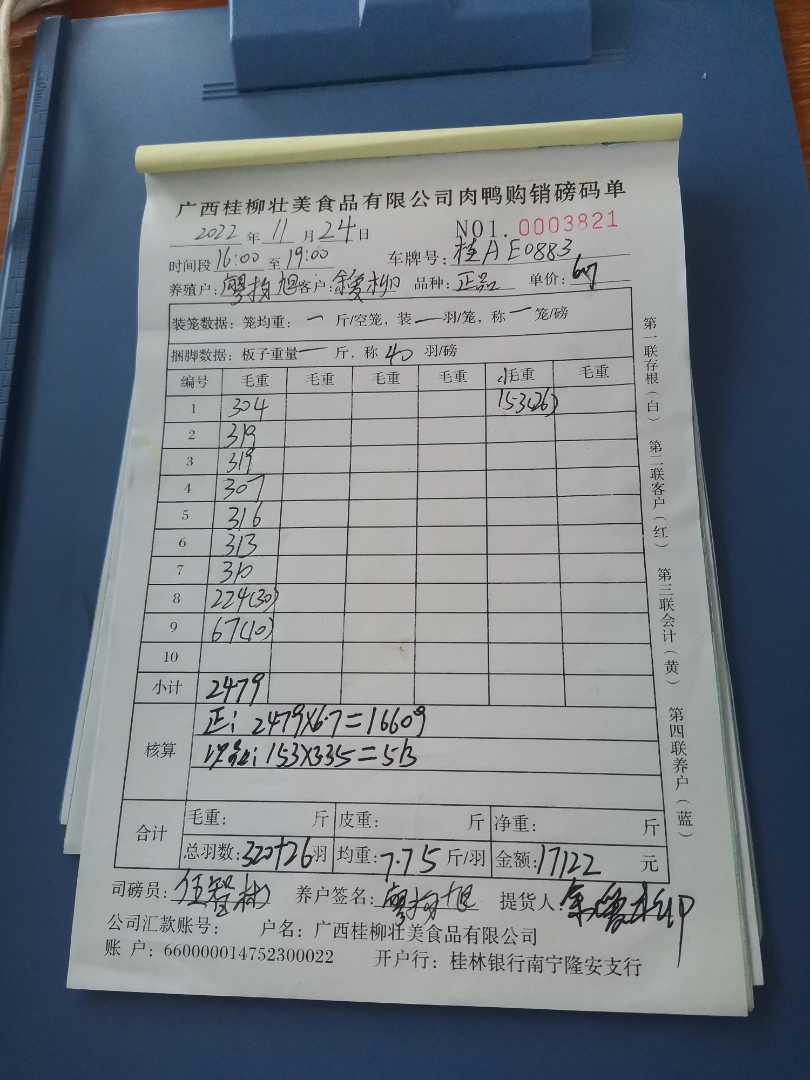 广西桂柳壮美食品有限公司肉鸭购销磅码单
2022 年 11 月 24 日 NO1. 0003821
时间段 16:00 至 19:00 车牌号: 桂A E0883
养殖户: 客户: 品种: 正品 单价: 6.7
装笼数据: 笼均重: 一 斤/空笼, 装 一 羽/笼, 称 一 笼/磅
捆脚数据: 板子重量 一 斤, 称 40 羽/磅
编号 毛重 毛重 毛重 毛重 小毛重 毛重
1 304 153(26)
2 319
3 319
4 307
5 316
6 313
7 310
8 224(30)
9 67(10)
10
小计 2479
核算
正: 2479×6.7=16609
153×3.35=513
合计
毛重: 斤 皮重: 斤 净重: 斤
总羽数: 320+26 羽 均重: 7.75 斤/羽 金额: 17122 元
司磅员: 伍智彬 养户签名: 提货人:
公司汇款账号: 户名: 广西桂柳壮美食品有限公司
账 户: 660000014752300022 开户行: 桂林银行南宁隆安支行
第一联存根(白) 第二联客户(红) 第三联会计(黄) 第四联养户(蓝)